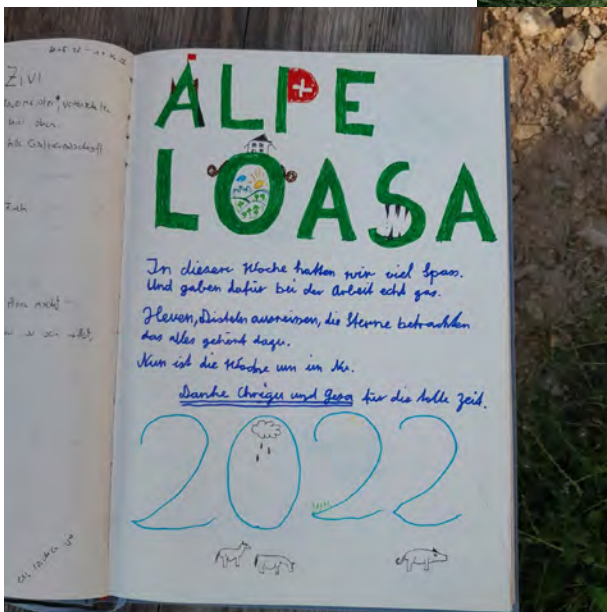 ZIVI
ALPE
LOASA
In dieser Woche hatten wir viel Spass.
Und gaben dafür bei der Arbeit echt gas.
Heuen, Disteln ausreissen, die Sterne betrachten
das alles gehört dazu.
Nun ist die Woche um im Nu.
Danke Chrigu und Gesa für die tolle Zeit.
2022